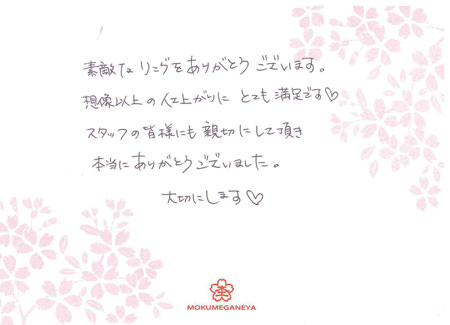 素敵なリングをありがとうございます。
想像以上の仕上がりに とても満足です♡
スタッフの皆様にも親切にして頂き
本当にありがとうございました。
大切にします♡
MOKUMEGANEYA